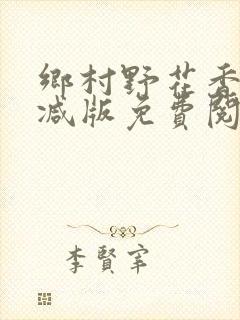 鄉村野花香
减版免費閱
李賢宰